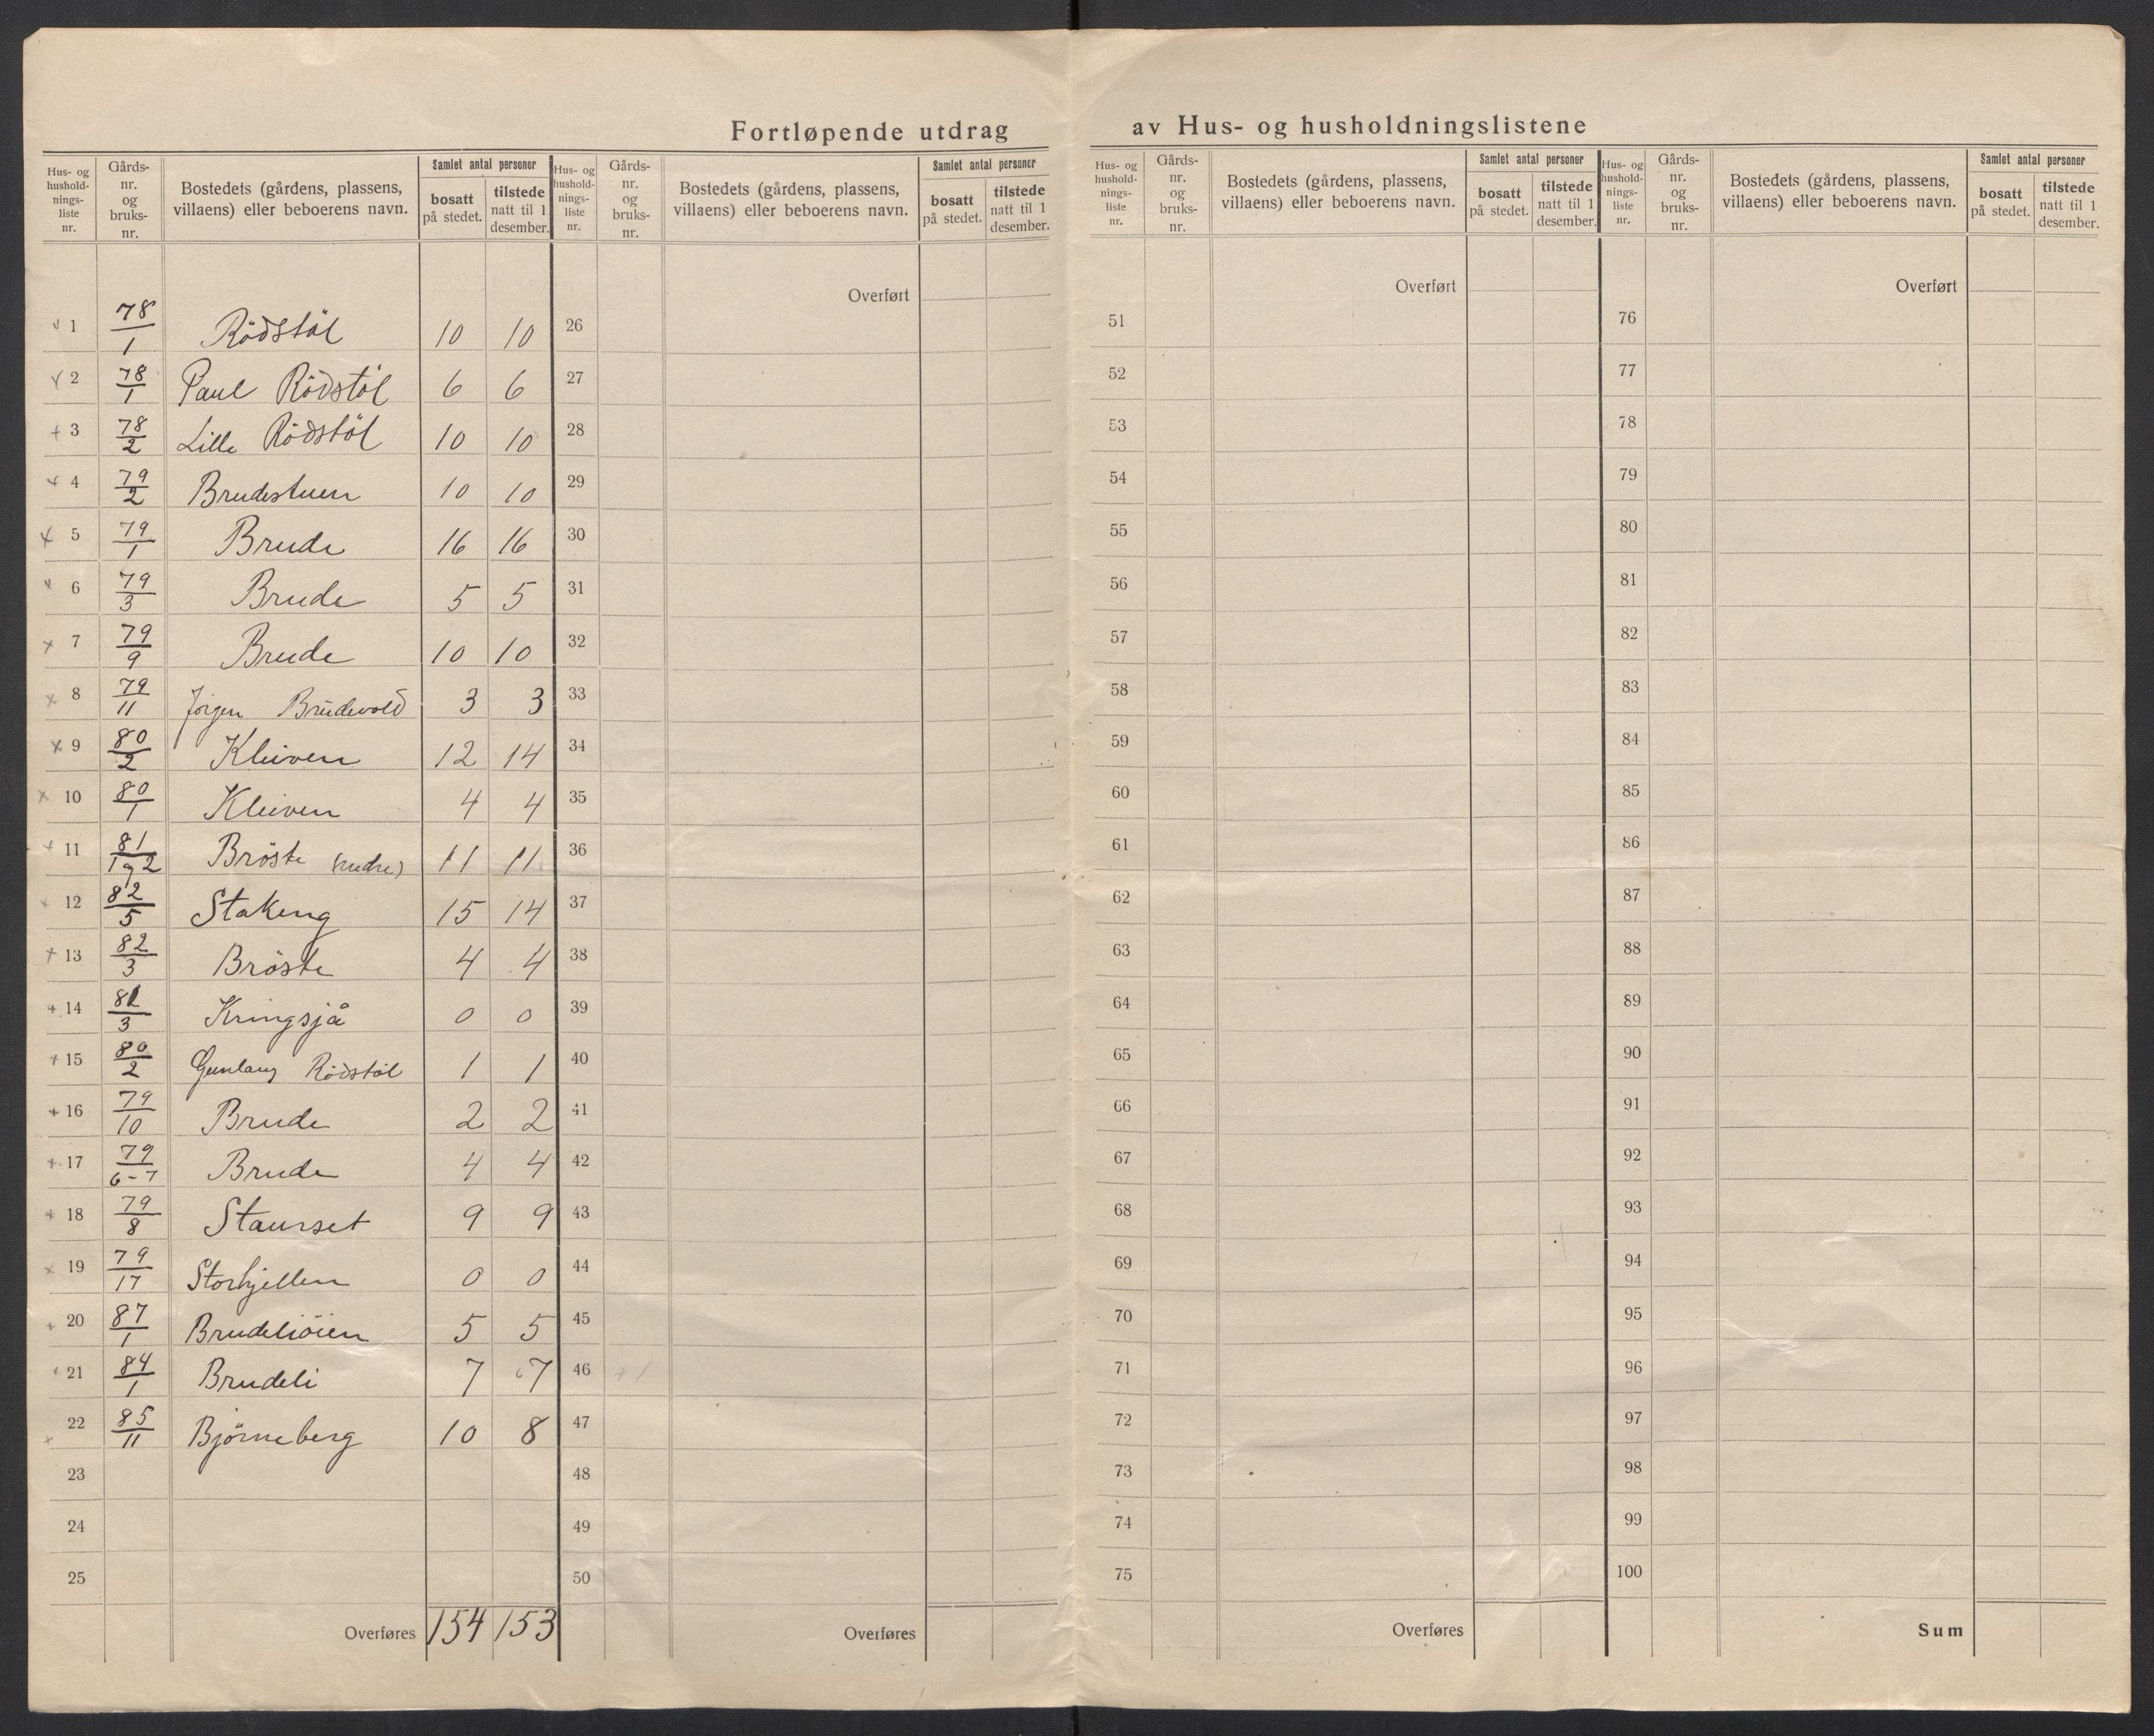 Fortløpende utdrag av Hus- og husholdningslistene
Hus- og hushold-nings-liste nr. Gårds-nr. og bruks-nr. Bostedets (gårdens, plassens, villaens) eller beboerens navn. Samlet antal personer bosatt på stedet. tilstede natt til 1 desember.
Hus- og hushold-nings-liste nr. Gårds-nr. og bruks-nr. Bostedets (gårdens, plassens, villaens) eller beboerens navn. Samlet antal personer bosatt på stedet. tilstede natt til 1 desember.
Hus- og hushold-nings-liste nr. Gårds-nr. og bruks-nr. Bostedets (gårdens, plassens, villaens) eller beboerens navn. Samlet antal personer bosatt på stedet. tilstede natt til 1 desember.
Hus- og hushold-nings-liste nr. Gårds-nr. og bruks-nr. Bostedets (gårdens, plassens, villaens) eller beboerens navn. Samlet antal personer bosatt på stedet. tilstede natt til 1 desember.
Overført Overført Overført
1 78/1 Rödstöl 10 10 26 51 76
2 78/1 Paul Rödstöl 6 6 27 52 77
3 78/2 Lille Rödstöl 10 10 28 53 78
4 79/2 Brudestuen 10 10 29 54 79
5 79/1 Brude 16 16 30 55 80
6 79/3 Brude 5 5 31 56 81
7 79/9 Brude 10 10 32 57 82
8 79/11 Jörgen Brudevold 3 3 33 58 83
9 80/2 Kleiven 12 14 34 59 84
10 80/1 Kleiven 4 4 35 60 85
11 81/1 og 2 Bröste (nedre) 11 11 36 61 86
12 82/5 Stakeng 15 14 37 62 87
13 82/3 Bröste 4 4 38 63 88
14 81/3 Kringsjå 0 0 39 64 89
15 80/2 Gunlaug Rödstöl 1 1 40 65 90
16 79/10 Brude 2 2 41 66 91
17 79/6-7 Brude 4 4 42 67 92
18 79/8 Staurset 9 9 43 68 93
19 79/17 Storhjellen 0 0 44 69 94
20 87/1 Brudeliöien 5 5 45 70 95
21 84/1 Brudeli 7 7 46 71 96
22 85/11 Björneberg 10 8 47 72 97
23 48 73 98
24 49 74 99
25 50 75 100
Overføres 154 153 Overføres Overføres Sum